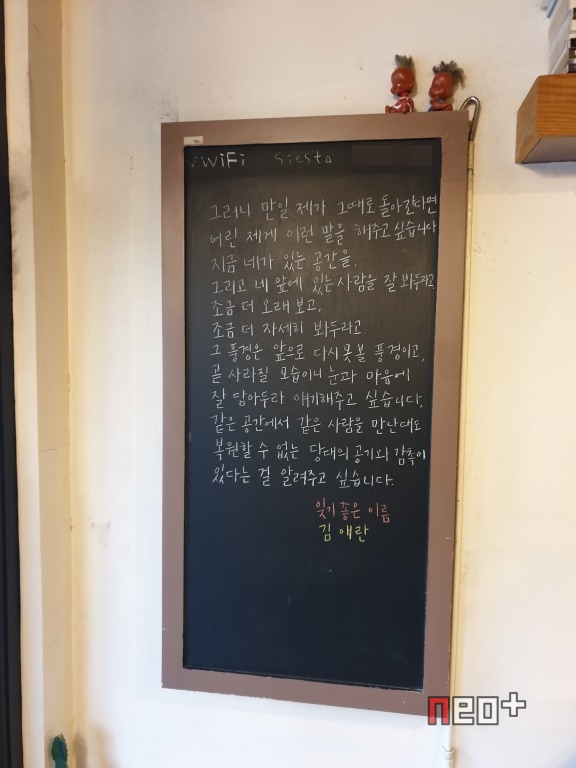 WiFi siesta
그러니 만일 제가 그때로 돌아간다면
어린 제게 이런 말을 해주고 싶습니다
지금 네가 있는 공간을,
그리고 네 앞에 있는 사람을 잘 봐두라고
조금 더 오래 보고,
조금 더 자세히 봐두라고
그 풍경은 앞으로 다시 못볼 풍경이고,
곧 사라질 모습이니 눈과 마음에
잘 담아두라 얘기해주고 싶습니다,
같은 공간에서 같은 사람을 만난대도
복원할 수 없는 당대의 공기와 감촉이
있다는 걸 알려주고 싶습니다.
잊기 좋은 이름
김애란
neo+